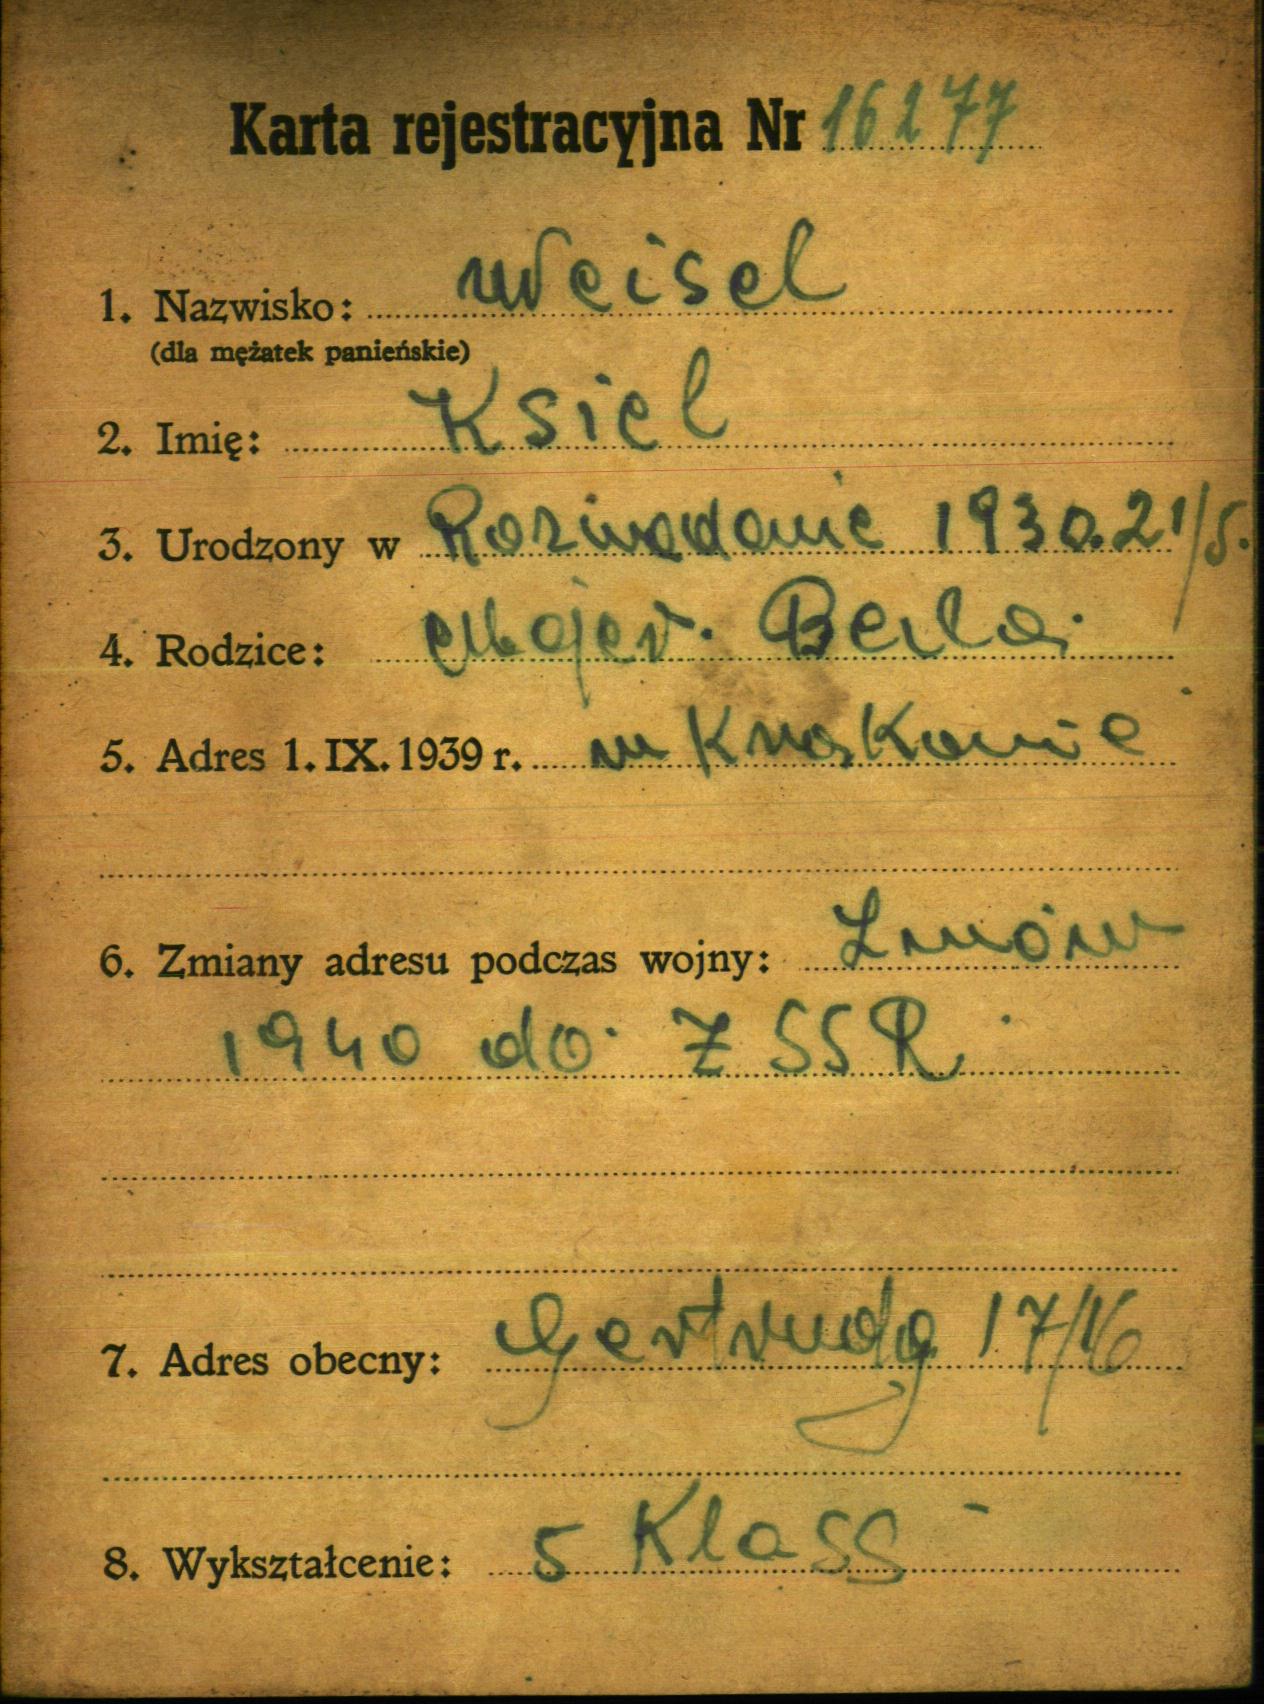 Karta rejestracyjna Nr 16277
1. Nazwisko: Weisel
(dla mężatek panieńskie)
2. Imię: Ksiel
3. Urodzony w Rozwadowie 1930.21/5.
4. Rodzice: Majer. Berla.
5. Adres 1. IX. 1939 r. w Krakowie
6. Zmiany adresu podczas wojny: Lwów
1940 do ZSSR.
7. Adres obecny: Gertrudy 17/16
8. Wykształcenie: 5 Klass